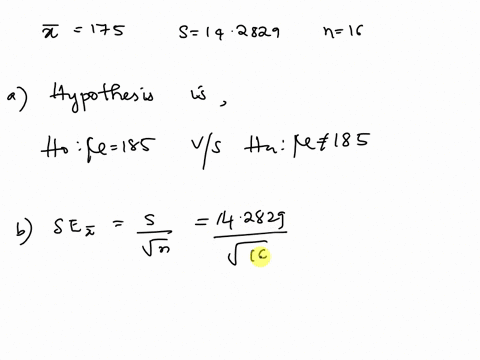 x̄ = 175 S = 14.2829 n = 16
a) Hypothesis is,
Ho: μ = 185 V/s Ha: μ ≠ 185
b) SEx̄ = S/√n = 14.2829/√16